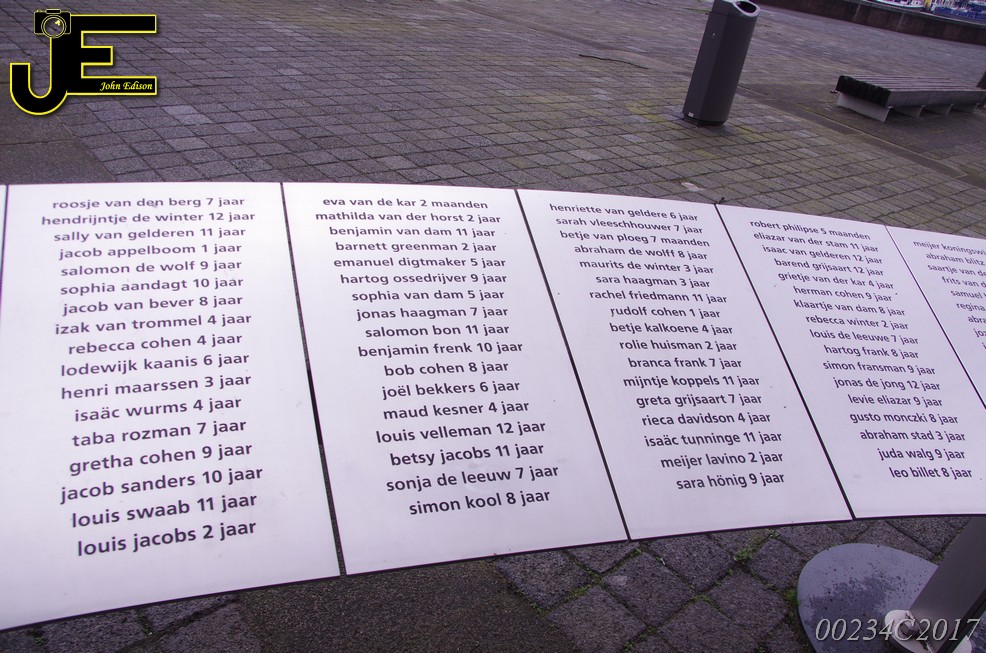 JE
John Edison
roosje van den berg 7 jaar
hendrijntje de winter 12 jaar
sally van gelderen 11 jaar
jacob appelboom 1 jaar
salomon de wolf 9 jaar
sophia aandagt 10 jaar
jacob van bever 8 jaar
izak van trommel 4 jaar
rebecca cohen 4 jaar
lodewijk kaanis 6 jaar
henri maarssen 3 jaar
isaäc wurms 4 jaar
taba rozman 7 jaar
gretha cohen 9 jaar
jacob sanders 10 jaar
louis swaab 11 jaar
louis jacobs 2 jaar
eva van de kar 2 maanden
mathilda van der horst 2 jaar
benjamin van dam 11 jaar
barnett greenman 2 jaar
emanuel digtmaker 5 jaar
hartog ossedrijver 9 jaar
sophia van dam 5 jaar
jonas haagman 7 jaar
salomon bon 11 jaar
benjamin frenk 10 jaar
bob cohen 8 jaar
joël bekkers 6 jaar
maud kesner 4 jaar
louis velleman 12 jaar
betsy jacobs 11 jaar
sonja de leeuw 7 jaar
simon kool 8 jaar
henriette van geldere 6 jaar
sarah vleeschhouwer 7 jaar
betje van ploeg 7 maanden
abraham de wolff 8 jaar
maurits de winter 3 jaar
sara haagman 3 jaar
rachel friedmann 11 jaar
rudolf cohen 1 jaar
betje kalkoene 4 jaar
rolie huisman 2 jaar
branca frank 7 jaar
mijntje koppels 11 jaar
greta grijsaart 7 jaar
rieca davidson 4 jaar
isaäc tunninge 11 jaar
meijer lavino 2 jaar
sara hönig 9 jaar
robert philipse 5 maanden
eliazar van der stam 11 jaar
isaac van gelderen 12 jaar
barend grijsaart 12 jaar
grietje van der kar 4 jaar
herman cohen 9 jaar
klaartje van dam 8 jaar
rebecca winter 2 jaar
louis de leeuwe 7 jaar
hartog frank 8 jaar
simon fransman 9 jaar
jonas de jong 12 jaar
levie eliazar 9 jaar
gusto monczki 8 jaar
abraham stad 3 jaar
juda walg 9 jaar
leo billet 8 jaar
meijer
abraham blitz
saartje van
frits van
samuel
regina
00234C2017